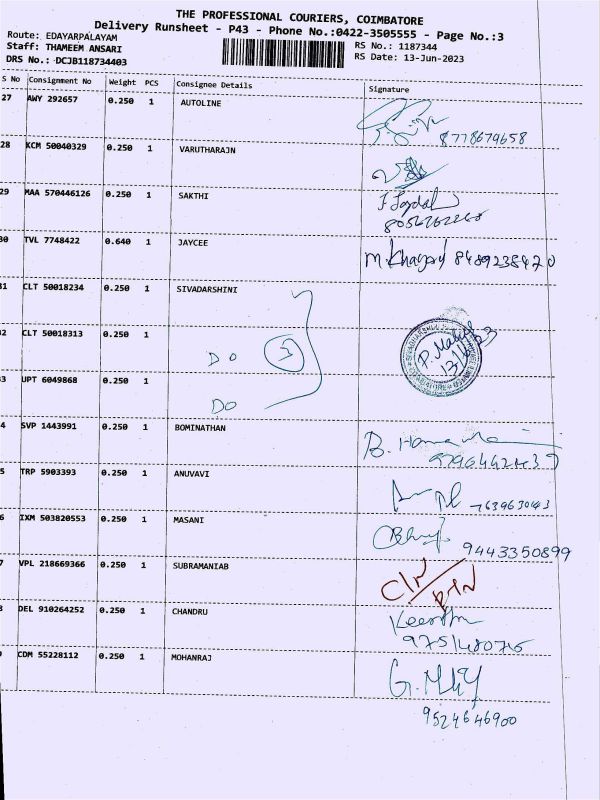 THE PROFESSIONAL COURIERS, COIMBATORE
Delivery Runsheet - P43 - Phone No.:0422-3505555 - Page No.:3
Route: EDAYARPALAYAM
Staff: THAMEEM ANSARI
DRS No.: DCJB118734403
RS No.: 1187344
RS Date: 13-Jun-2023
S No Consignment No Weight PCS Consignee Details Signature
27 AWY 292657 0.250 1 AUTOLINE
8778679658
28 KCM 50040329 0.250 1 VARUTHARAJN
29 MAA 570446126 0.250 1 SAKTHI
30 TVL 7748422 0.640 1 JAYCEE
8489238420
31 CLT 50018234 0.250 1 SIVADARSHINI
32 CLT 50018313 0.250 1
DO 3
13/6/23
33 UPT 6049868 0.250 1
DO
4 SVP 1443991 0.250 1 BOMINATHAN
5 TRP 5903393 0.250 1 ANUVAVI
6 IXM 503820553 0.250 1 MASANI
9443350899
7 VPL 218669366 0.250 1 SUBRAMANIAB
8 DEL 910264252 0.250 1 CHANDRU
9 CDM 55228112 0.250 1 MOHANRAJ
9524646900